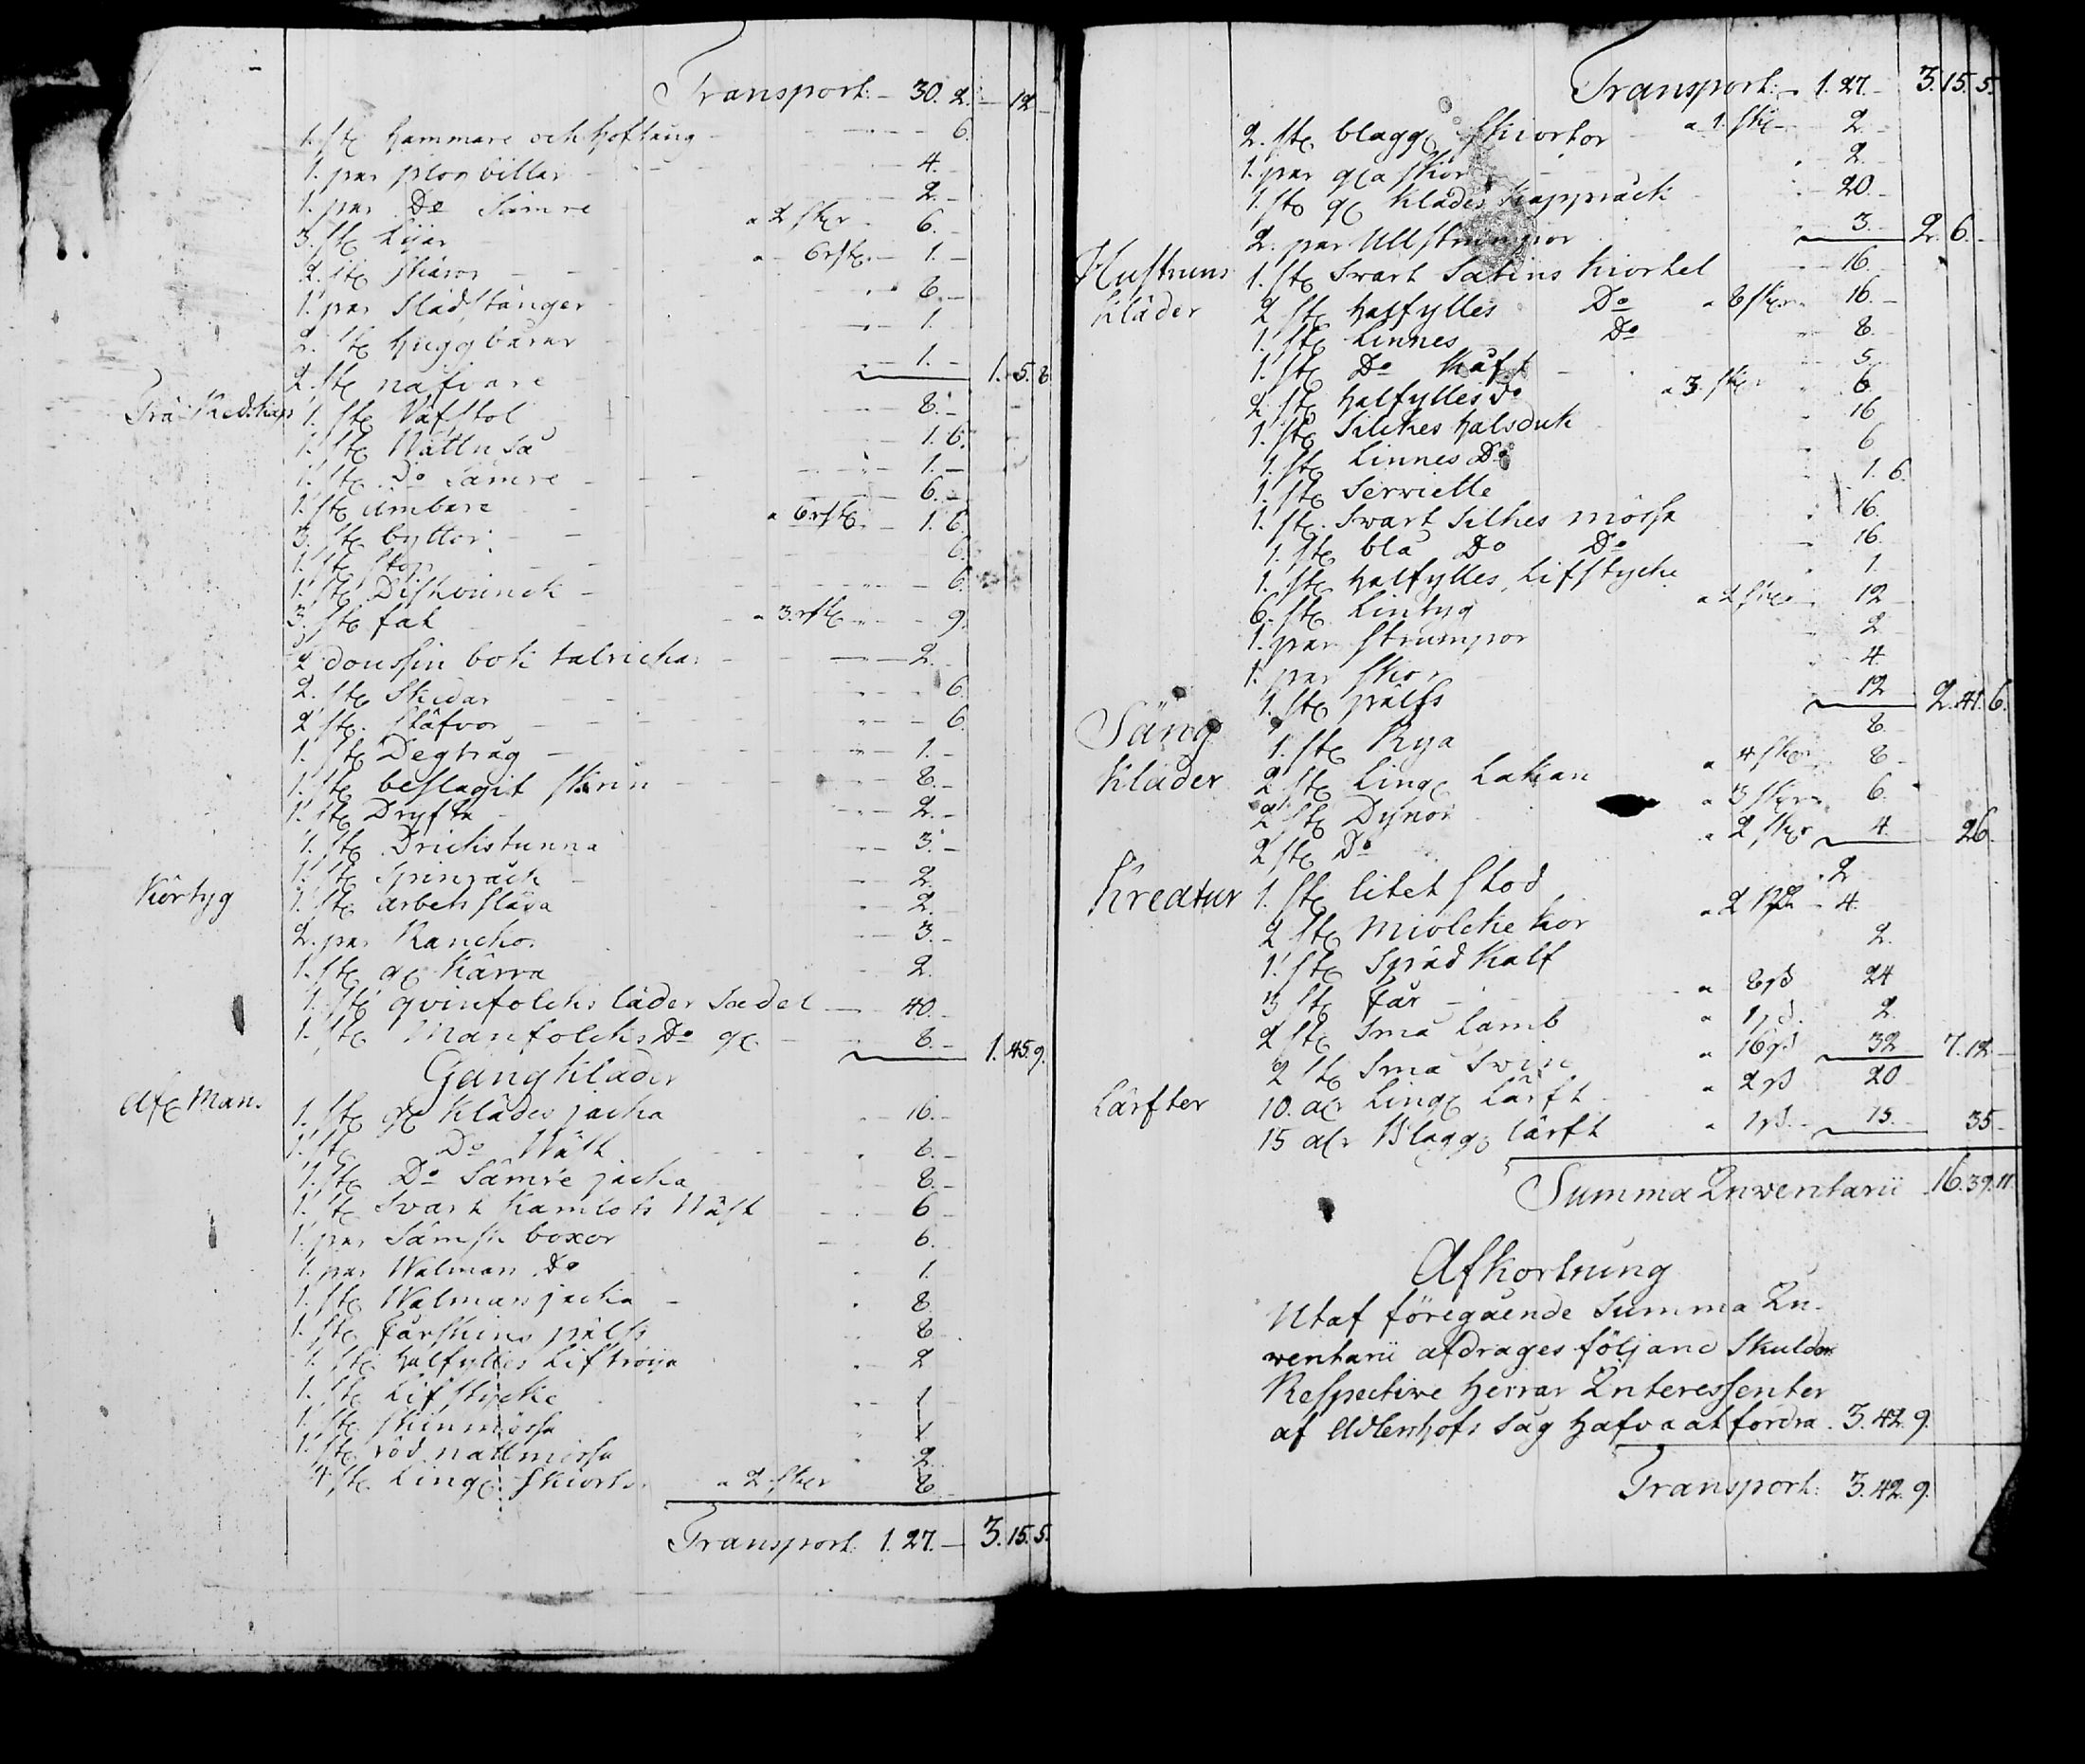 Transport: 30. 2. 12
1. st. Hammare och Hoftång 6.
1. par plogbillar 4.
1. par Do Sämre 2.
3. st. Lijar a 2 sk. 6.
2. st. skäror a 6 rst. 1.
1. par Slädstänger 6.
2. st. Huggbårar 1.
2. st. nafvare 1. 1. 5. 8
Trä Redskap 1. st. Väfstol 8.
1. st. Wattu Så 1. 6.
1. st. Do Sämre 1.
1. st. ämbare 6.
3. st. byttor a 6 rst. 1. 6.
1. st. Stop 6.
1. st. Diskbunck 6.
3. st. fat a 3 rst. 9.
2 doussin bok talrickar 2.
2. st. Skidor 6.
2 st. stäfvor 6.
1. st. Degtråg 1.
1. st. beslagit skrin 8.
1. st. Dryfta 2.
1. st. Drickstunna 3.
1. st. Spinråck 2.
Körtyg 1. st. arbets släda 2.
2. par Ranckor 3.
1. st. gl. Kärra 2.
1. st. qvinfolcks läder Sadel 40.
1. st. Manfolcks Do gl. 8. 1. 45. 9.
Gångkläder
Afl. Man. 1. st. gl. Klädes jacka 16.
1. st. Do Wäst 6.
1. st. Do Sämre jacka 8.
1. st. Svart Kamlots Wäst 6
1. par Sämsk boxor 6.
1. par Walmars Do 1.
1. st. Walmars jacka 8.
1. st. Fårskins päls 8
1. st. halfylles Liftröija 2
1. st. Lifstycke 1
1. st. skinmössa 1
1. st. röd nattmössa 2
4 st. Ling. Skiortor a 2 sk. 8
Transport: 1. 27. 3. 15. 5.
Transport: 1. 27. 3. 15. 5.
2. st. blagg. Skiortor a 1. sk. 2.
1. par gla skor 2.
1. st. gl. Klädes Kappråck 20.
2. par Ullstrumpor 3. 2. 6.
Hustruns 1. st. Swart Satins Kiortel 16.
Kläder 2 st. Halfylles Do a 8 sk. 16.
1. st. Linnes Do 8.
1. st. Do Käft 5.
2 st. Halfylles Do a 3. sk. 6
1. st. Silckes halsduk 16
1. st. Linnes Do 6
1. st. Serviette 1. 6.
1. st. Swart Silkes mössa 16.
1. st. blå Do Do 16.
1. st. halfylles Lifstycke 1.
6. st. Lintyg a 2 sk. 12
1. par Strumpor 2
1. par skor 4.
1. st. pälss 12 2. 41. 6.
Säng 1. st. Rya 8.
Kläder 2 st. Ling. Lakan a 4 sk. 8
2 st. Dynor a 3 sk. 6.
2 st. Do a 2 sk. 4. 26.
Kreatur 1. st. litet stod 2
2 st. Miölcke Kor a 2 Rd. 4.
1. st. Späd Kalf 2.
3 st. får a 8 ß 24
2 st. Små Lamb a 1 ß. 2.
2 st. Små Swin a 16 ß 32 7. 12.
Lärfter 10. alr Ling. Lärft a 2 ß 20
15 alr Blagg. lärft a 1 ß. 15. 35.
Summa Inventarii 16. 39. 11.
Afkortning
Utaf föregående Summa In-
ventarii afdrages följand Skulder
Respective Herrar Interessenter
af Adlershofs Såg hafva at fordra. 3. 42. 9.
Transport: 3. 42. 9.